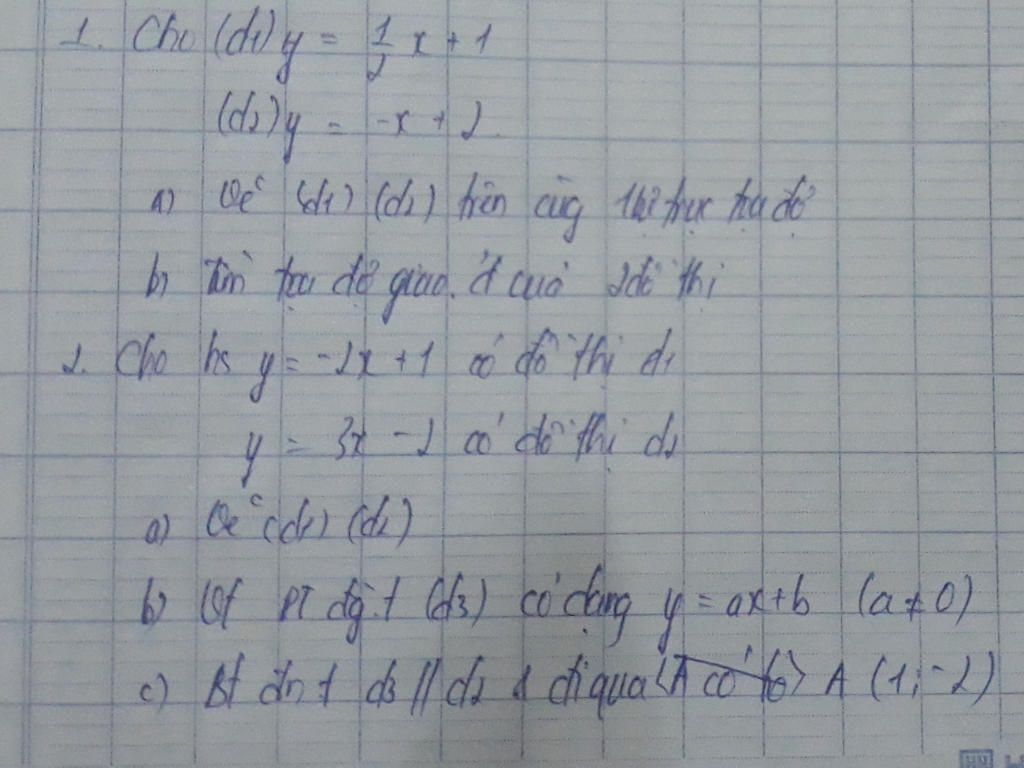 1. Cho (d1) y = 1/2 x + 1
(d2) y = -x + 2
a) Vẽ (d1) (d2) trên cùg hệ trục tọa độ
b) Tìm tọa độ giao. đ của 2 đồ thị
2. Cho hs y = -2x + 1 có đồ thị d1
y = 3x - 2 có đồ thị d2
a) Vẽ (d1) (d2)
b) Vt PT đg.t (d3) có dạng y = ax + b (a ≠ 0)
c) Bt t d3 // d2 & đi qua A (1; -2)